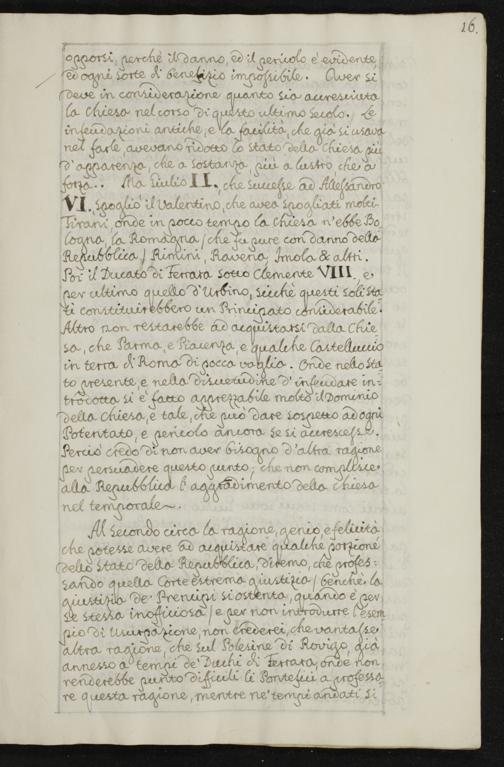 16.
opporsi, perche il danno, ed il pericolo e' evidente,
ed ogni sorte di benefizio impossibile. Over si
deve in considerazione quanto sia accresciuta
la Chiesa nel corso di questo ultimo Secolo. Le
infeudazioni antiche, e la facilità, che già si usava
nel farle avevano ridotto lo stato della Chiesa più
d'apparenza, che a sostanza, più a lustro che a
forza.. Ma Giulio II., che successe ad Allessandro
VI. spogliò il Valentino, che avea spogliati molti
Tirani, onde in pocco tempo la Chiesa n'ebbe Bo
logna, la Romagna / che fu pure con danno della
Repubblica / Rimini, Ravena, Imola & altri.
Poi il Ducato di Ferrara sotto Clemente VIII, e,
per ultimo quello d'Urbino, sicchè questi soli Sta
ti constituirebbero un Principato considerabile.
Altro non restarebbe ad acquistarsi dalla Chie
sa, che Parma, e Piacenza, e qualche Castelluccio
in terra di Roma di pocca vaglia. Onde nello Sta
to presente, e nella disuetudine d'infeudare in-
trodotta si e' fatto apprezzabile molto il Dominio
della Chiesa, e tale, che può dare sospetto ad ogni
Potentato, e pericolo ancora se si accrescesse.
Perciò credo di non aver bisogno d'altra ragione
per persuadere questo punto, che non complisce
alla Repubblica l'aggrandimento della Chiesa
nel temporale.
Al Secondo circa la ragione, genio e felicità
che potesse avere ad acquistare qualche porzione
dello Stato della Repubblica, diremo, che profes=
sando quella Corte estrema giustizia / benchè la
giustizia de' Prencipi si ostenta, quando e' per
se stessa inofficiosa / e per non introdurre l'esem
pio di Usurpazione, non crederei, che vantasse
altra ragione, che sul Polesine di Rovigo, già
annesso a tempi de' Duchi di Ferrara, onde non
renderebbe punto difficili li Pontefici a professa=
re questa ragione, mentre ne' tempi andati si